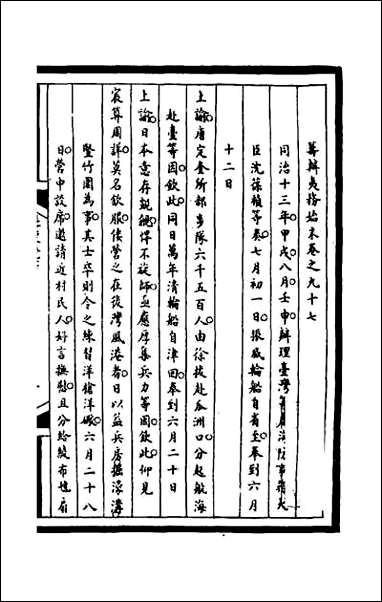 籌辦夷務始末卷之九十七
同治十三年甲戌八月壬申辦理臺灣等處海防事務大
臣沈葆楨等奏七月初一日振威輪船自省至奉到六月
十二日
上諭唐定奎所部步隊六千五百人由徐拔赴瓜洲口分起航海
赴臺等因欽此同日萬年清輪船自津回奉到六月二十日
上諭日本意存覬覦悍不旋師亟應厚集兵力等因欽此仰見
宸算周詳莫名欽服倭營之在後灣風港者日以益兵房掘濠溝
竪竹圍為事其士卒則令之練習洋槍洋礮六月二十八
日營中設席邀請近村民人好言撫慰且分給綾布摺扇